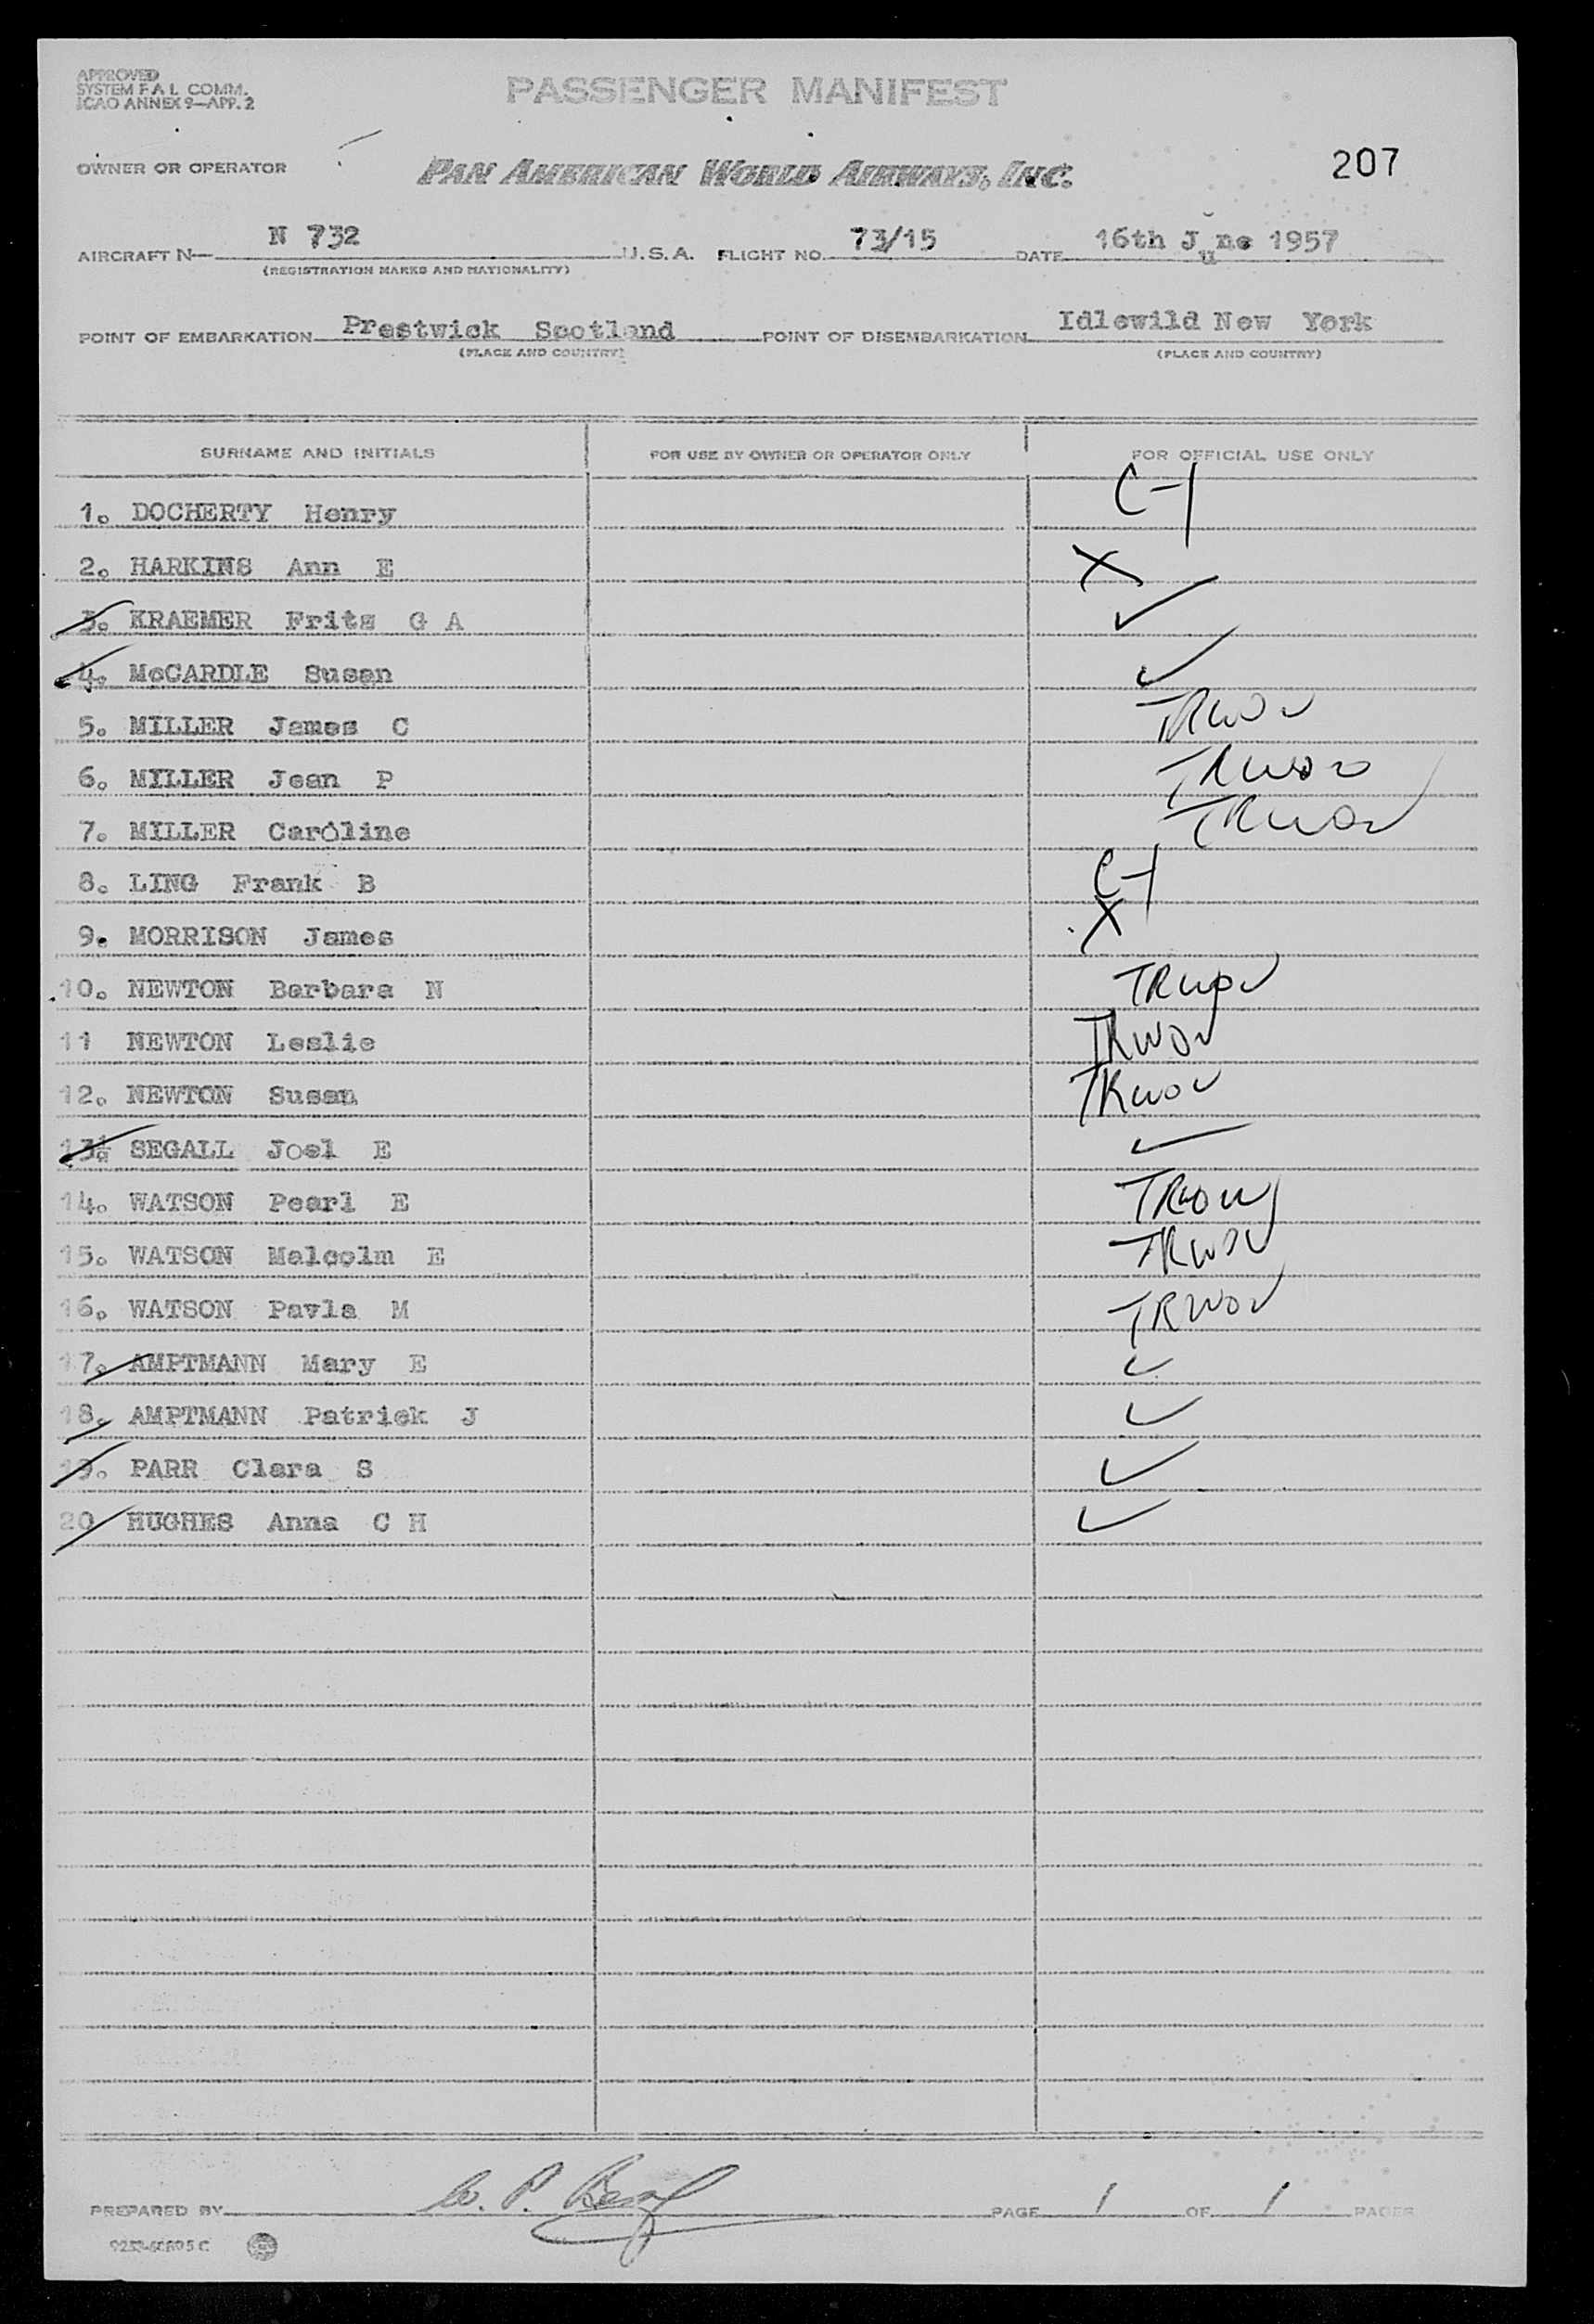 APPROVED
SYSTEM F.A.L. COMM.
ICAO ANNEX 9—APP. 2
PASSENGER MANIFEST
OWNER OR OPERATOR
PAN AMERICAN WORLD AIRWAYS, INC.
207
AIRCRAFT N— N 732 U.S.A. FLIGHT NO. 73/15 DATE 16th June 1957
(REGISTRATION MARKS AND NATIONALITY)
POINT OF EMBARKATION Prestwick Scotland POINT OF DISEMBARKATION Idlewild New York
(PLACE AND COUNTRY) (PLACE AND COUNTRY)
SURNAME AND INITIALS FOR USE BY OWNER OR OPERATOR ONLY FOR OFFICIAL USE ONLY
1. DOCHERTY Henry C-1
2. HARKINS Ann E X
3. KRAEMER Frits G A ✓
4. McCARDLE Susan ✓
5. MILLER James C TRWOV
6. MILLER Jean P TRWOV
7. MILLER Caroline TRWOV
8. LING Frank B C-1
9. MORRISON James X
10. NEWTON Barbara N TRWOV
11 NEWTON Leslie TRWOV
12. NEWTON Susan TRWOV
13. SEGALL Joel E ✓
14. WATSON Pearl E TRWOV
15. WATSON Malcolm E TRWOV
16. WATSON Pavla M TRWOV
17. AMPTMANN Mary E ✓
18. AMPTMANN Patrick J ✓
19. PARR Clara S ✓
20 HUGHES Anna C H ✓
PREPARED BY W. P. PAGE 1 OF 1 PAGES